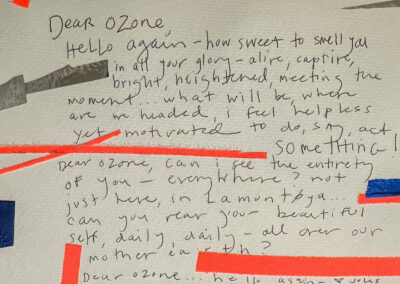 Dear Ozone,
Hello again - how sweet to smell you
in all your glory - alive, captive,
bright, heightened, meeting the
moment... what will be, when
are we headed, i feel helpless
yet motivated to do, say, act
SOMETHING!
Dear Ozone, can i see the entirety
of you - everywhere? not
just here, in Lamontøya...
can you rear your beautiful
self, daily, daily - all over our
mother earth?
Dear Ozone... hello again -